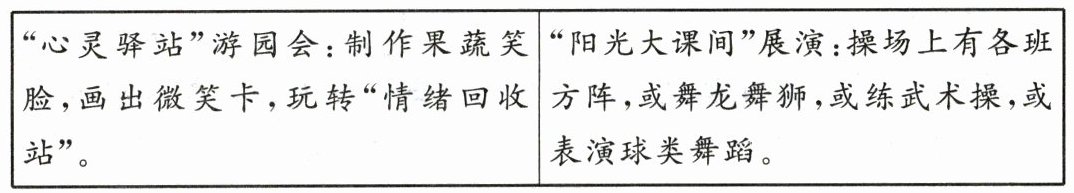 “心灵驿站”游园会:制作果蔬笑
脸,画出微笑卡,玩转“情绪回收
站”。
“阳光大课间”展演:操场上有各班
方阵,或舞龙舞狮,或练武术操,或
表演球类舞蹈。